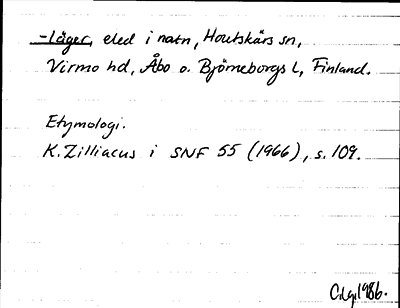 -läger, eled i natn, Houtskärs sn,
Virmo hd, Åbo o. Björneborgs l, Finland.
Etymologi.
K. Zilliacus i SNF 55 (1966), s. 109.
1986.